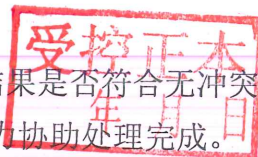 受控正本
年 月 日
结果是否符合无冲突
力协助处理完成。